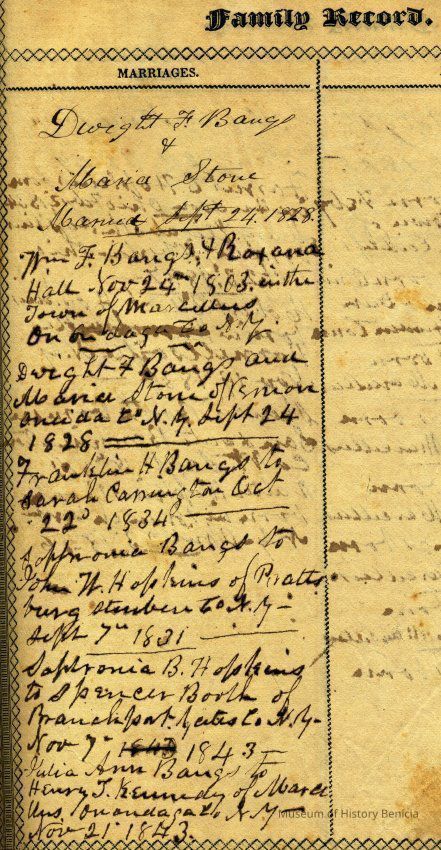 Family Record.
MARRIAGES.
Dwight F. Bangs
&
Maria Stone
Married Sept 24. 1828.
Wm F. Bangs & Roxana
Hall Nov 24th 1803. in the
Town of Marcellus
Onondaga Co N.Y.
Dwight F Bangs and
Maria Stone of Vernon
Oneida Co N.Y. Sept 24
1828
Franklin H. Bangs to
Sarah Carrington Oct
22d 1834
Sophronia Bangs to
John W. Hopkins of Pratts
burg Steuben Co N.Y -
Sept 7th 1831
Sophronia B. Hopkins
to Spencer Booth of
Branchport Yates Co N.Y-
Nov 7th 1843 1843 -
Julia Ann Bangs to
Henry T. Kennedy of Marce
llus, Onondaga Co N.Y -
Nov 21 1843.
Museum of History Benicia